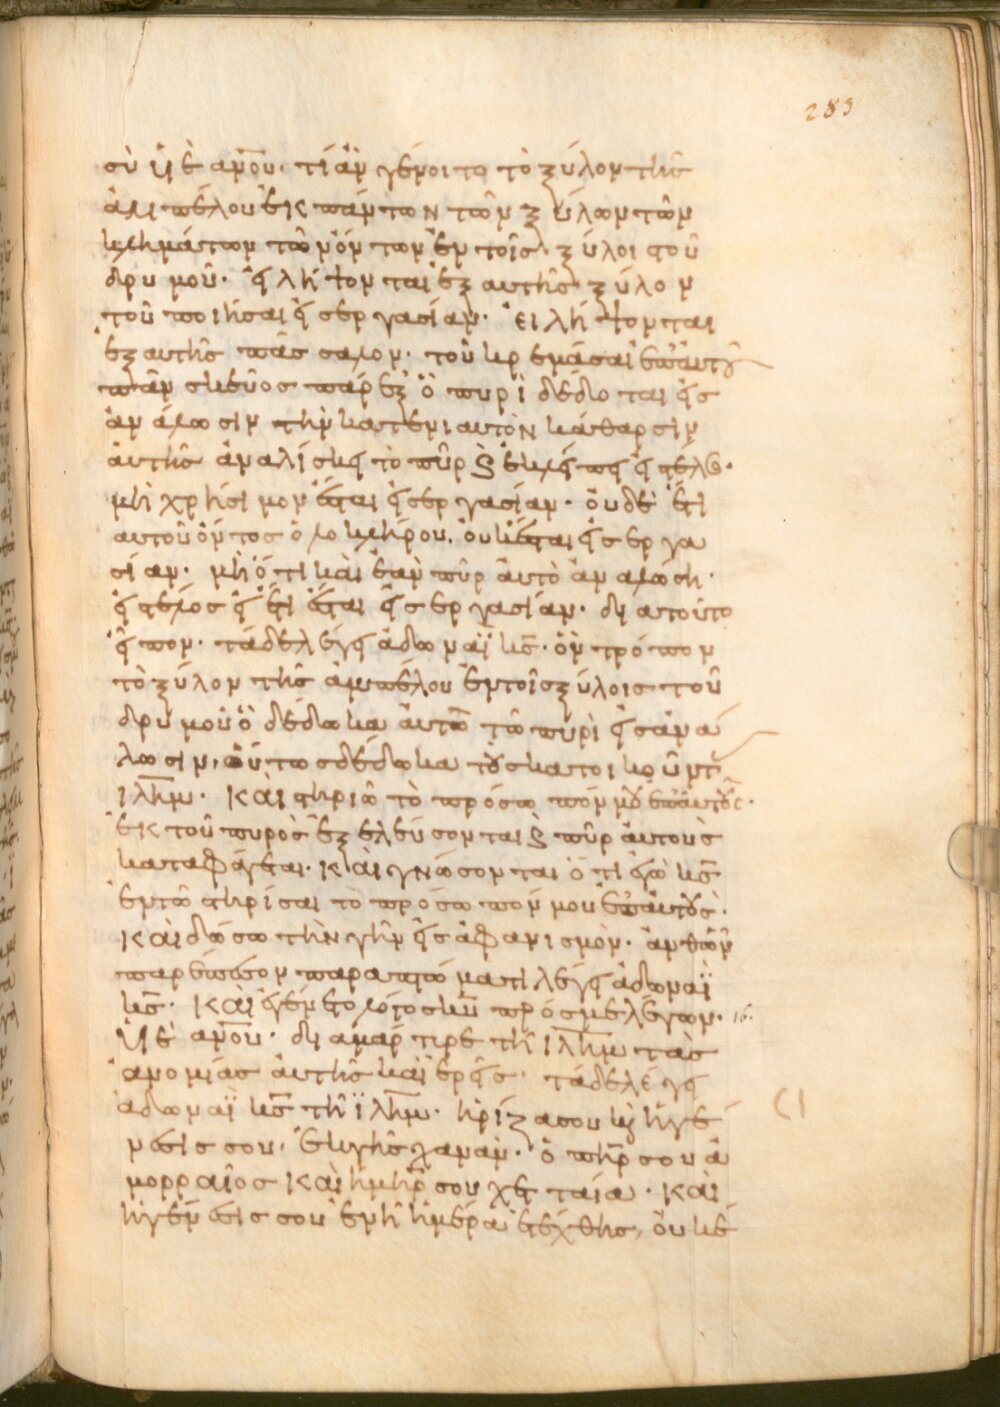 283
σὺ ὑιὲ ἀν̅ου̅· τί ἂν γένοιτο τὸ ξύλον τῆς
ἀμπέλου ἐκ πάντων τῶν ξύλων τῶν
κλημάτων τῶν ὄντων ἐν τοῖς ξύλοις τοῦ
δρυμοῦ· εἰ λήψονται ἐξ αὐτῆς ξύλον
τοῦ ποιῆσαι εἰς ἐργασίαν· εἰ λήψονται
ἐξ αὐτῆς πάσσαλον· τοῦ κρεμάσαι ἐπ' αὐτὸ
πᾶν σκεῦος πάρεξ ὃ πυρὶ δέδοται εἰς
ἀνάλωσιν τὴν κατ' ἐνιαυτὸν κάθαρσιν
αὐτῆς ἀναλίσκει τὸ πῦρ ϗ ἐκλείπει εἰς τέλος·
μὴ χρήσιμον ἔσται εἰς ἐργασίαν· οὐδὲ ἔτι
αὐτοῦ ὄντος ὁλοκλήρου, οὐκ ἔσται εἰς ἐργα
σίαν· μὴ ὅτι καὶ ἐὰν πῦρ αὐτὸ ἀναλώση·
εἰς τέλος εἰ ἔτι ἔσται εἰς ἐργασίαν· διατοῦτο
εἶπον· τάδε λέγει ἀδωναῒ κ̅ς̅· ὃν τρόπον
τὸ ξύλον τῆς ἀμπέλου ἐν τοῖς ξύλοις τοῦ
δρυμοῦ ὃ δέδωκα αὐτῶ τῶ πυρὶ εἰς ἀνά
λωσιν, οὕτως δέδωκα τοὺς κατοικοῦντας
ι̅λ̅η̅μ̅· καὶ στηριῶ τὸ πρόσωπόν μου ἐπ' αὐτούς·
ἐκ τοῦ πυρὸς ἐξελεύσονται ϗ πῦρ αὐτοὺς
καταφάγεται· καὶ γνώσονται ὅτι ἐγὼ κ̅ς̅
ἐν τῶ στηρίσαι τὸ πρόσωπόν μου ἐπ' αὐτούς·
καὶ δώσω τὴν γῆν εἰς ἀφανισμὸν· ἀνθ' ὧν
παρέπεσον παραπτώματι λέγει ἀδωναῒ
κ̅ς̅· καὶ ἐγένετο λόγος κ̅υ̅ πρός με λέγων· 16·
Υἱὲ ἀν̅ου̅· διαμάρτυρε τῆ ι̅λ̅η̅μ̅ τὰς
ἀνομίας αὐτῆς καὶ ἐρεῖς· τάδε λέγει
ἀδωναῒ κ̅ς̅ τῆ ϊ̅λ̅η̅μ̅· ἡ ρίζα σου ϗ ἡ γέ
νεσίς σου, ἐκ γῆς χαναὰν· ὁ π̅η̅ρ̅ σου ἀ
μορραῖος καὶ ἡ μ̅η̅ρ̅ σου χεταία· καὶ
ἡ γένεσίς σου ἐν ἧ ἡμέρα ἐτέχθης, οὐκ ἔ